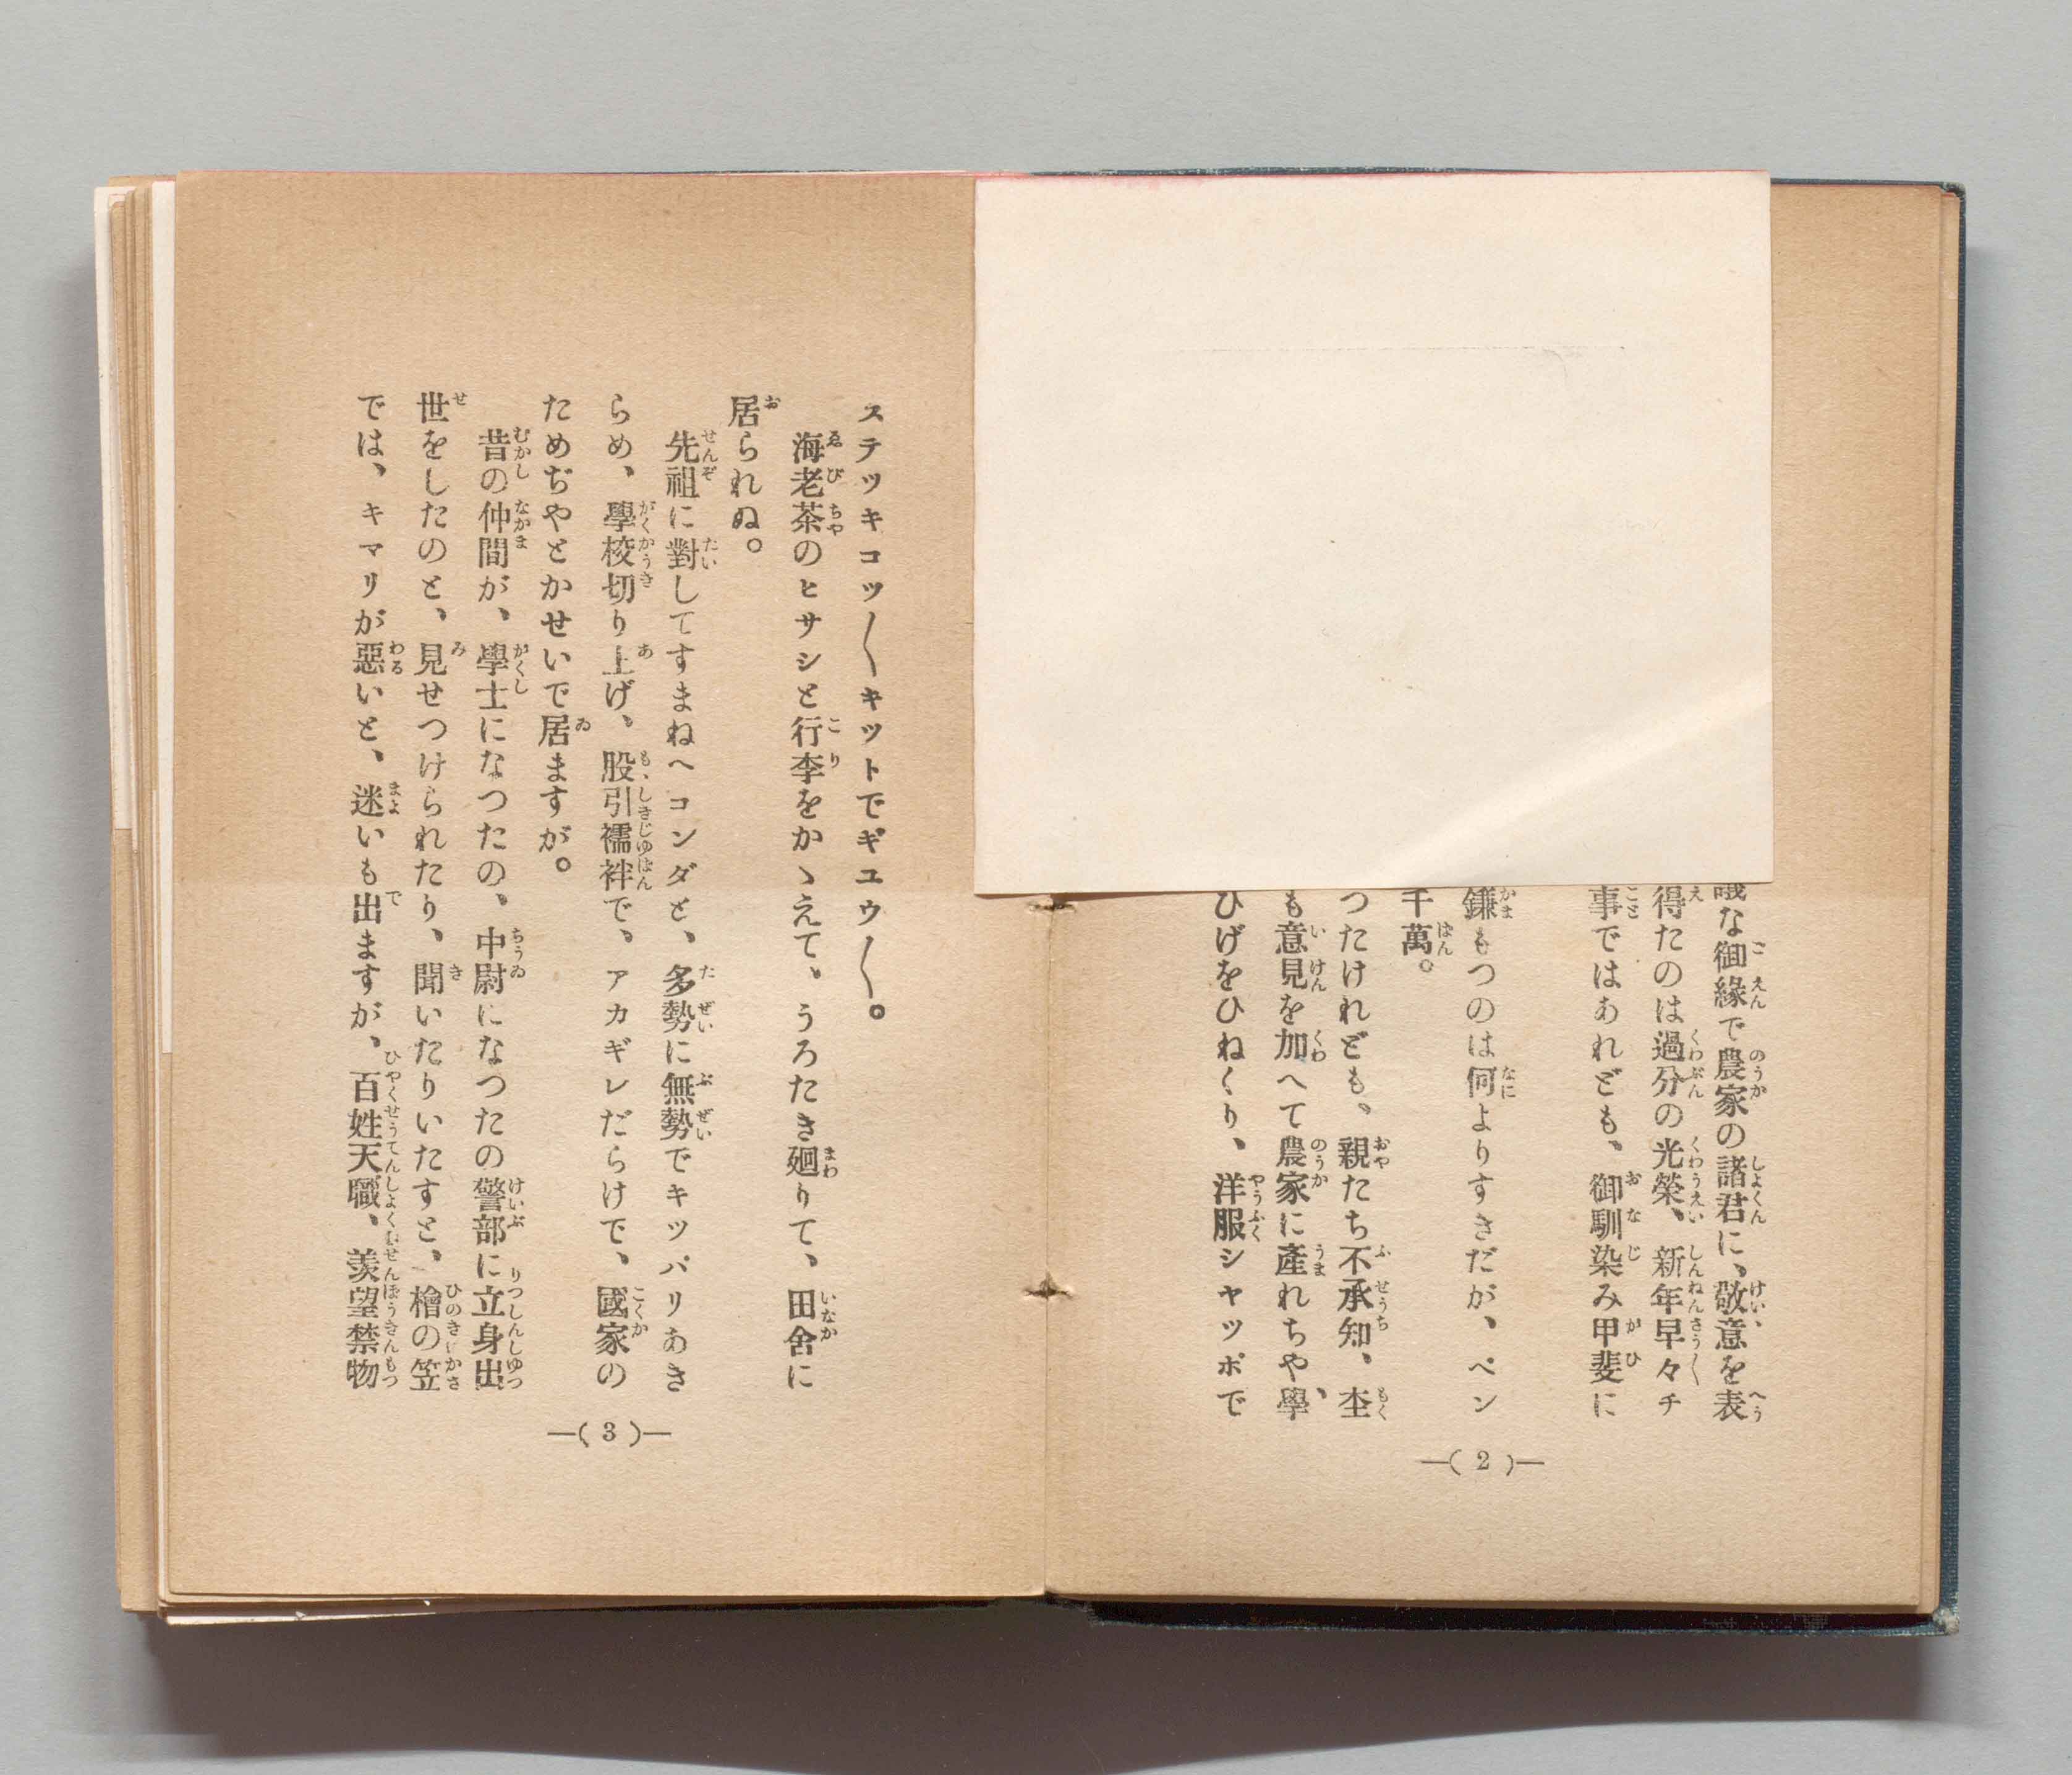 な御緣で農家の諸君に、敬意を表
得たのは過分の光榮、新年早々チ
事ではあれども、御馴染み甲斐に
鎌もつのは何よりすきだが、ペン
千萬。
つたけれども、親たち不承知、杢
も意見を加へて農家に產れちや、學
ひげをひねくり、洋服シヤツポで
—( 2 )—
ステツキコツ〱キツトでギユウ〱。
海老茶のヒサシと行李をかゝえて、うろたき廻りて、田舍に
居られぬ。
先祖に對してすまねヘコンダと、多勢に無勢でキツパリあき
らめ、學校切り上げ、股引襦袢で、アカギレだらけで、國家の
ためぢやとかせいで居ますが。
昔の仲間が、學士になつたの、中尉になつたの警部に立身出
世をしたのと、見せつけられたり、聞いたりいたすと、檜の笠
では、キマリが惡いと、迷いも出ますが、百姓天職、羨望禁物
—( 3 )—